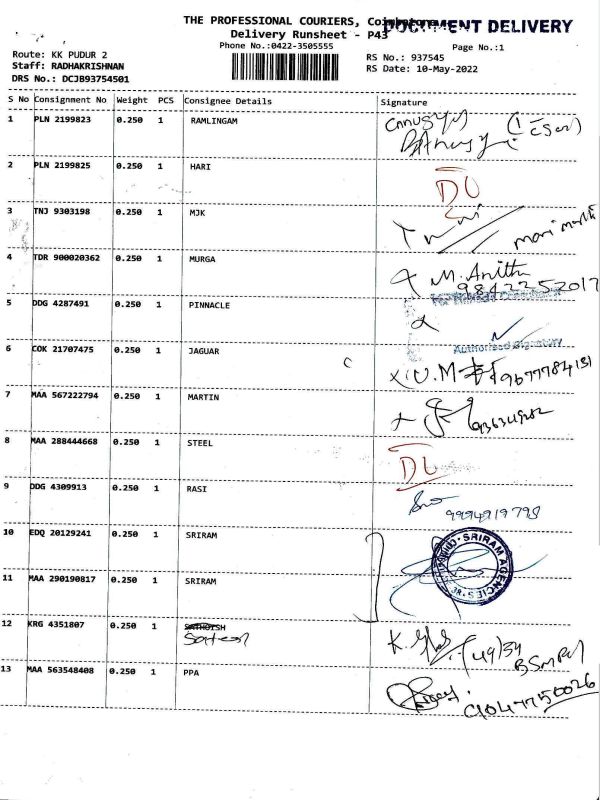 THE PROFESSIONAL COURIERS, Coimbatore
DOCUMENT DELIVERY
Delivery Runsheet - P43
Phone No.:0422-3505555
Page No.:1
Route: KK PUDUR 2
RS No.: 937545
Staff: RADHAKRISHNAN
RS Date: 10-May-2022
DRS No.: DCJB93754501
S No Consignment No Weight PCS Consignee Details Signature
1 PLN 2199823 0.250 1 RAMLINGAM
2 PLN 2199825 0.250 1 HARI
DL
3 TNJ 9303198 0.250 1 MJK
4 TDR 900020362 0.250 1 MURGA
M. Anitha
9842252017
5 DDG 4287491 0.250 1 PINNACLE
Authorised Signatory
6 COK 21707475 0.250 1 JAGUAR
9677784131
7 MAA 567222794 0.250 1 MARTIN
8 MAA 288444668 0.250 1 STEEL
DL
9 DDG 4309913 0.250 1 RASI
9994919798
10 EDQ 20129241 0.250 1 SRIRAM
SRIRAM AGENCIES
11 MAA 290190817 0.250 1 SRIRAM
12 KRG 4351807 0.250 1 SATHOISH
49/34
13 MAA 563548408 0.250 1 PPA
9047750026